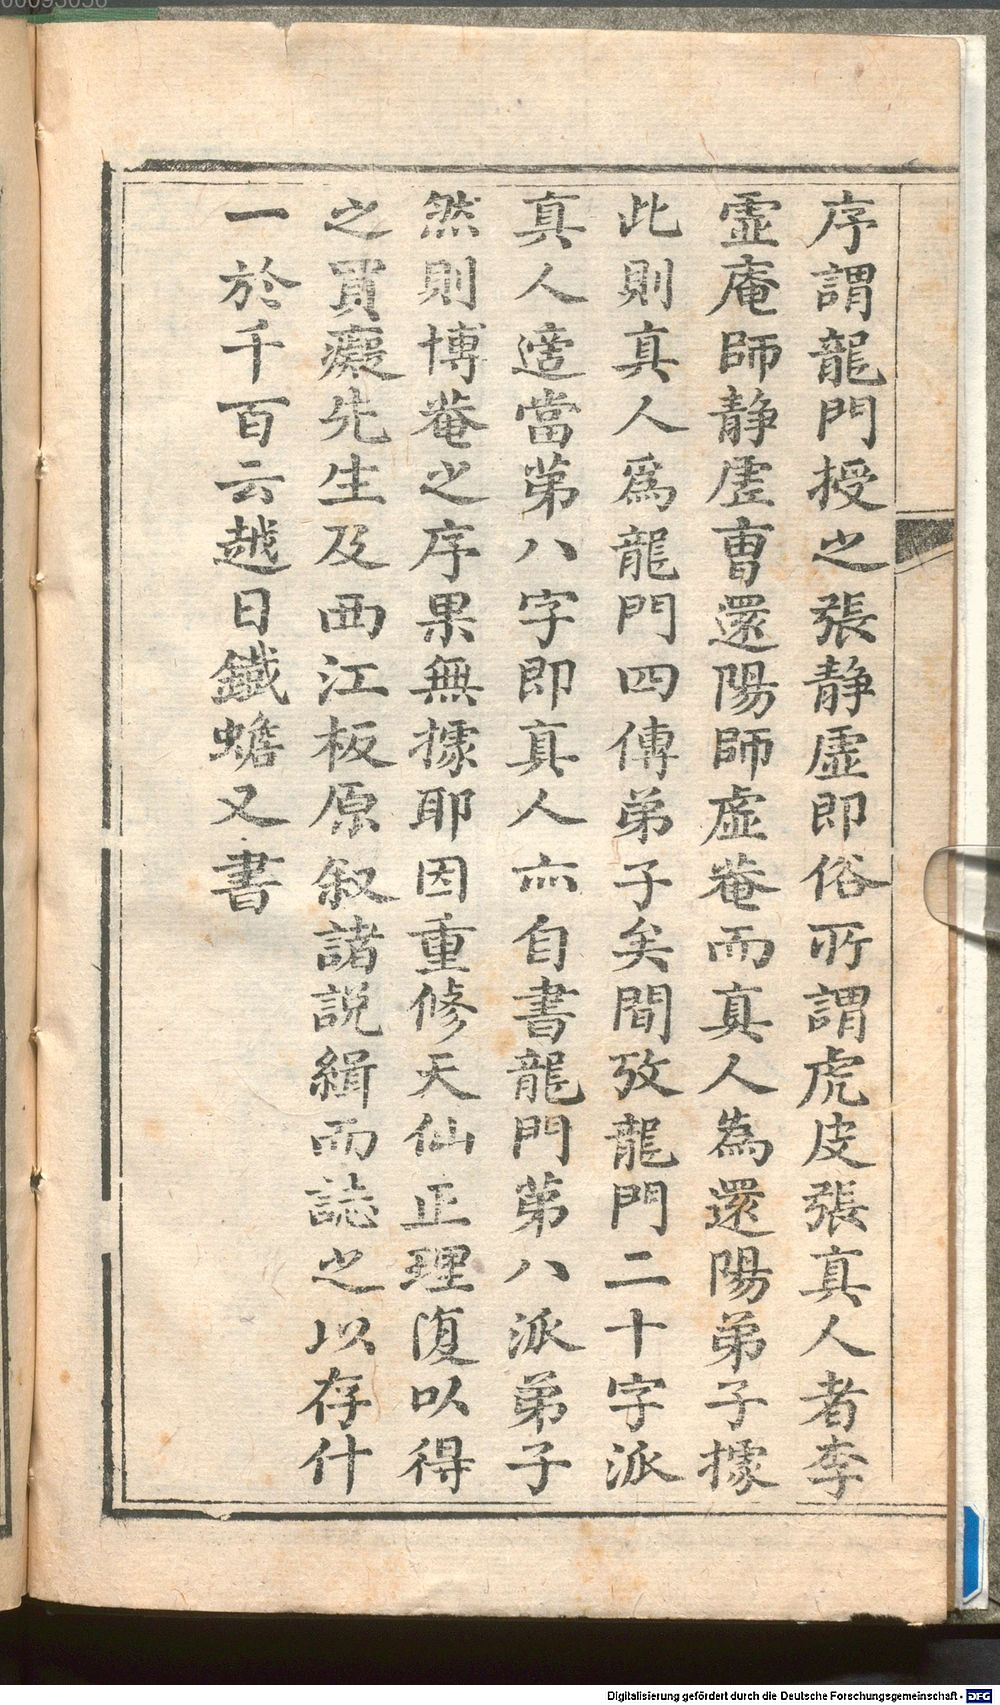 序謂龍門授之張静虛即俗所謂虎皮張真人者李
虛庵師静虛曹還陽師虛菴而真人為還陽弟子據
此則真人爲龍門四傳弟子矣間攷龍門二十字派
真人適當苐八字即真人亦自書龍門苐八派弟子
然則博菴之序果無據耶因重修天仙正理復以得
之買癡先生及西江板原叙諸説緝而誌之以存什
一於千百云越日鐵蟾又書
00093056
Digitalisierung gefördert durch die Deutsche Forschungsgemeinschaft - DFG